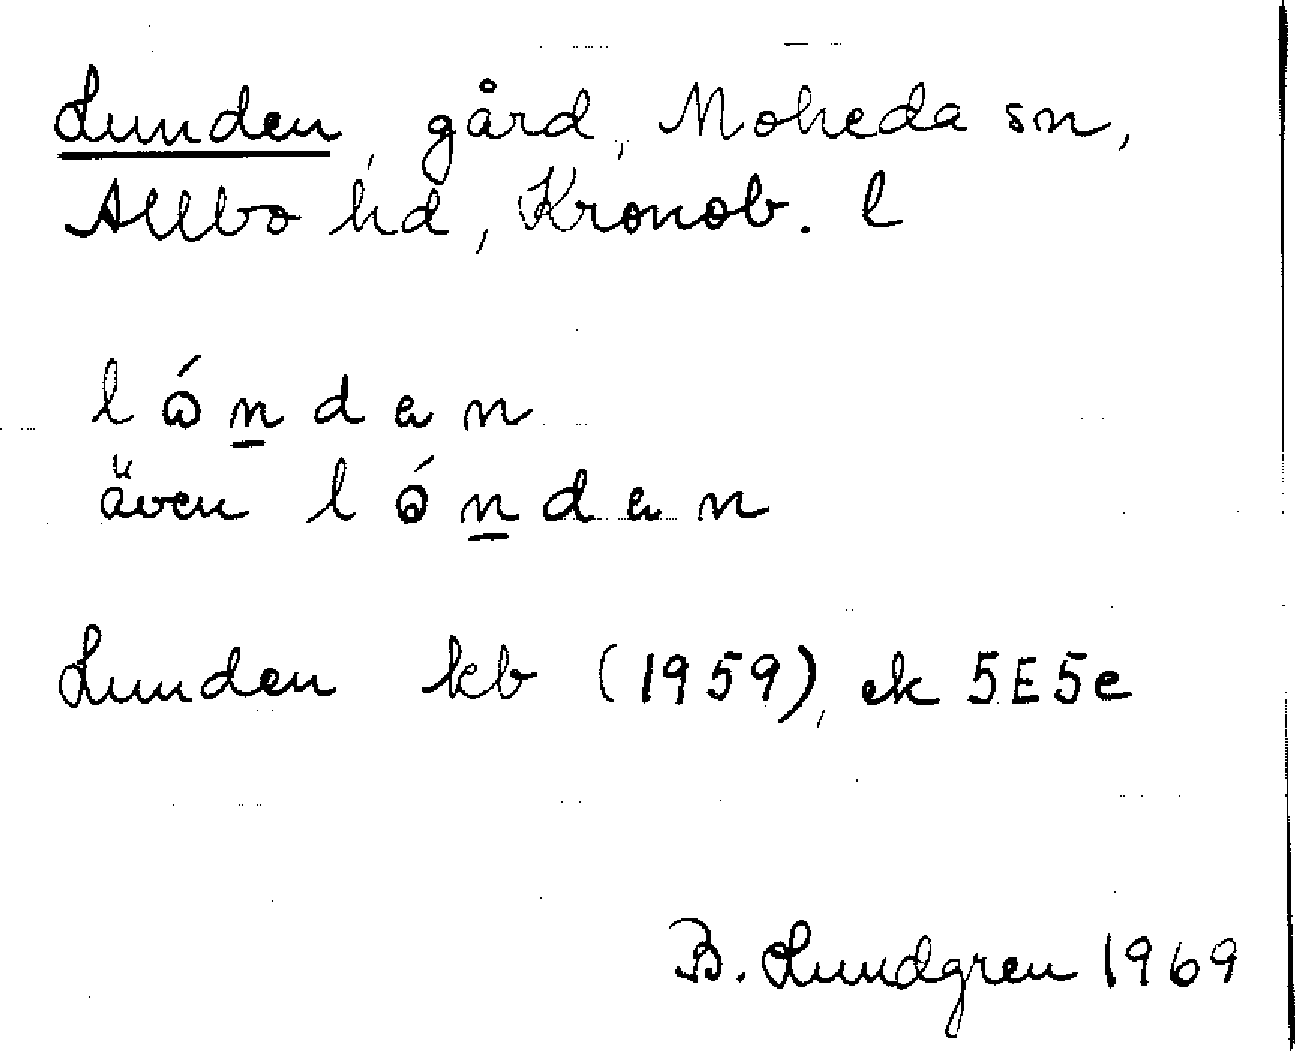 Lunden, gård, Moheda sn,
Allbo hd, Kronob. l
lǿn̲dan
även lǿn̲dan
Lunden kb (1959), ek 5E5e
B. Lundgren 1969